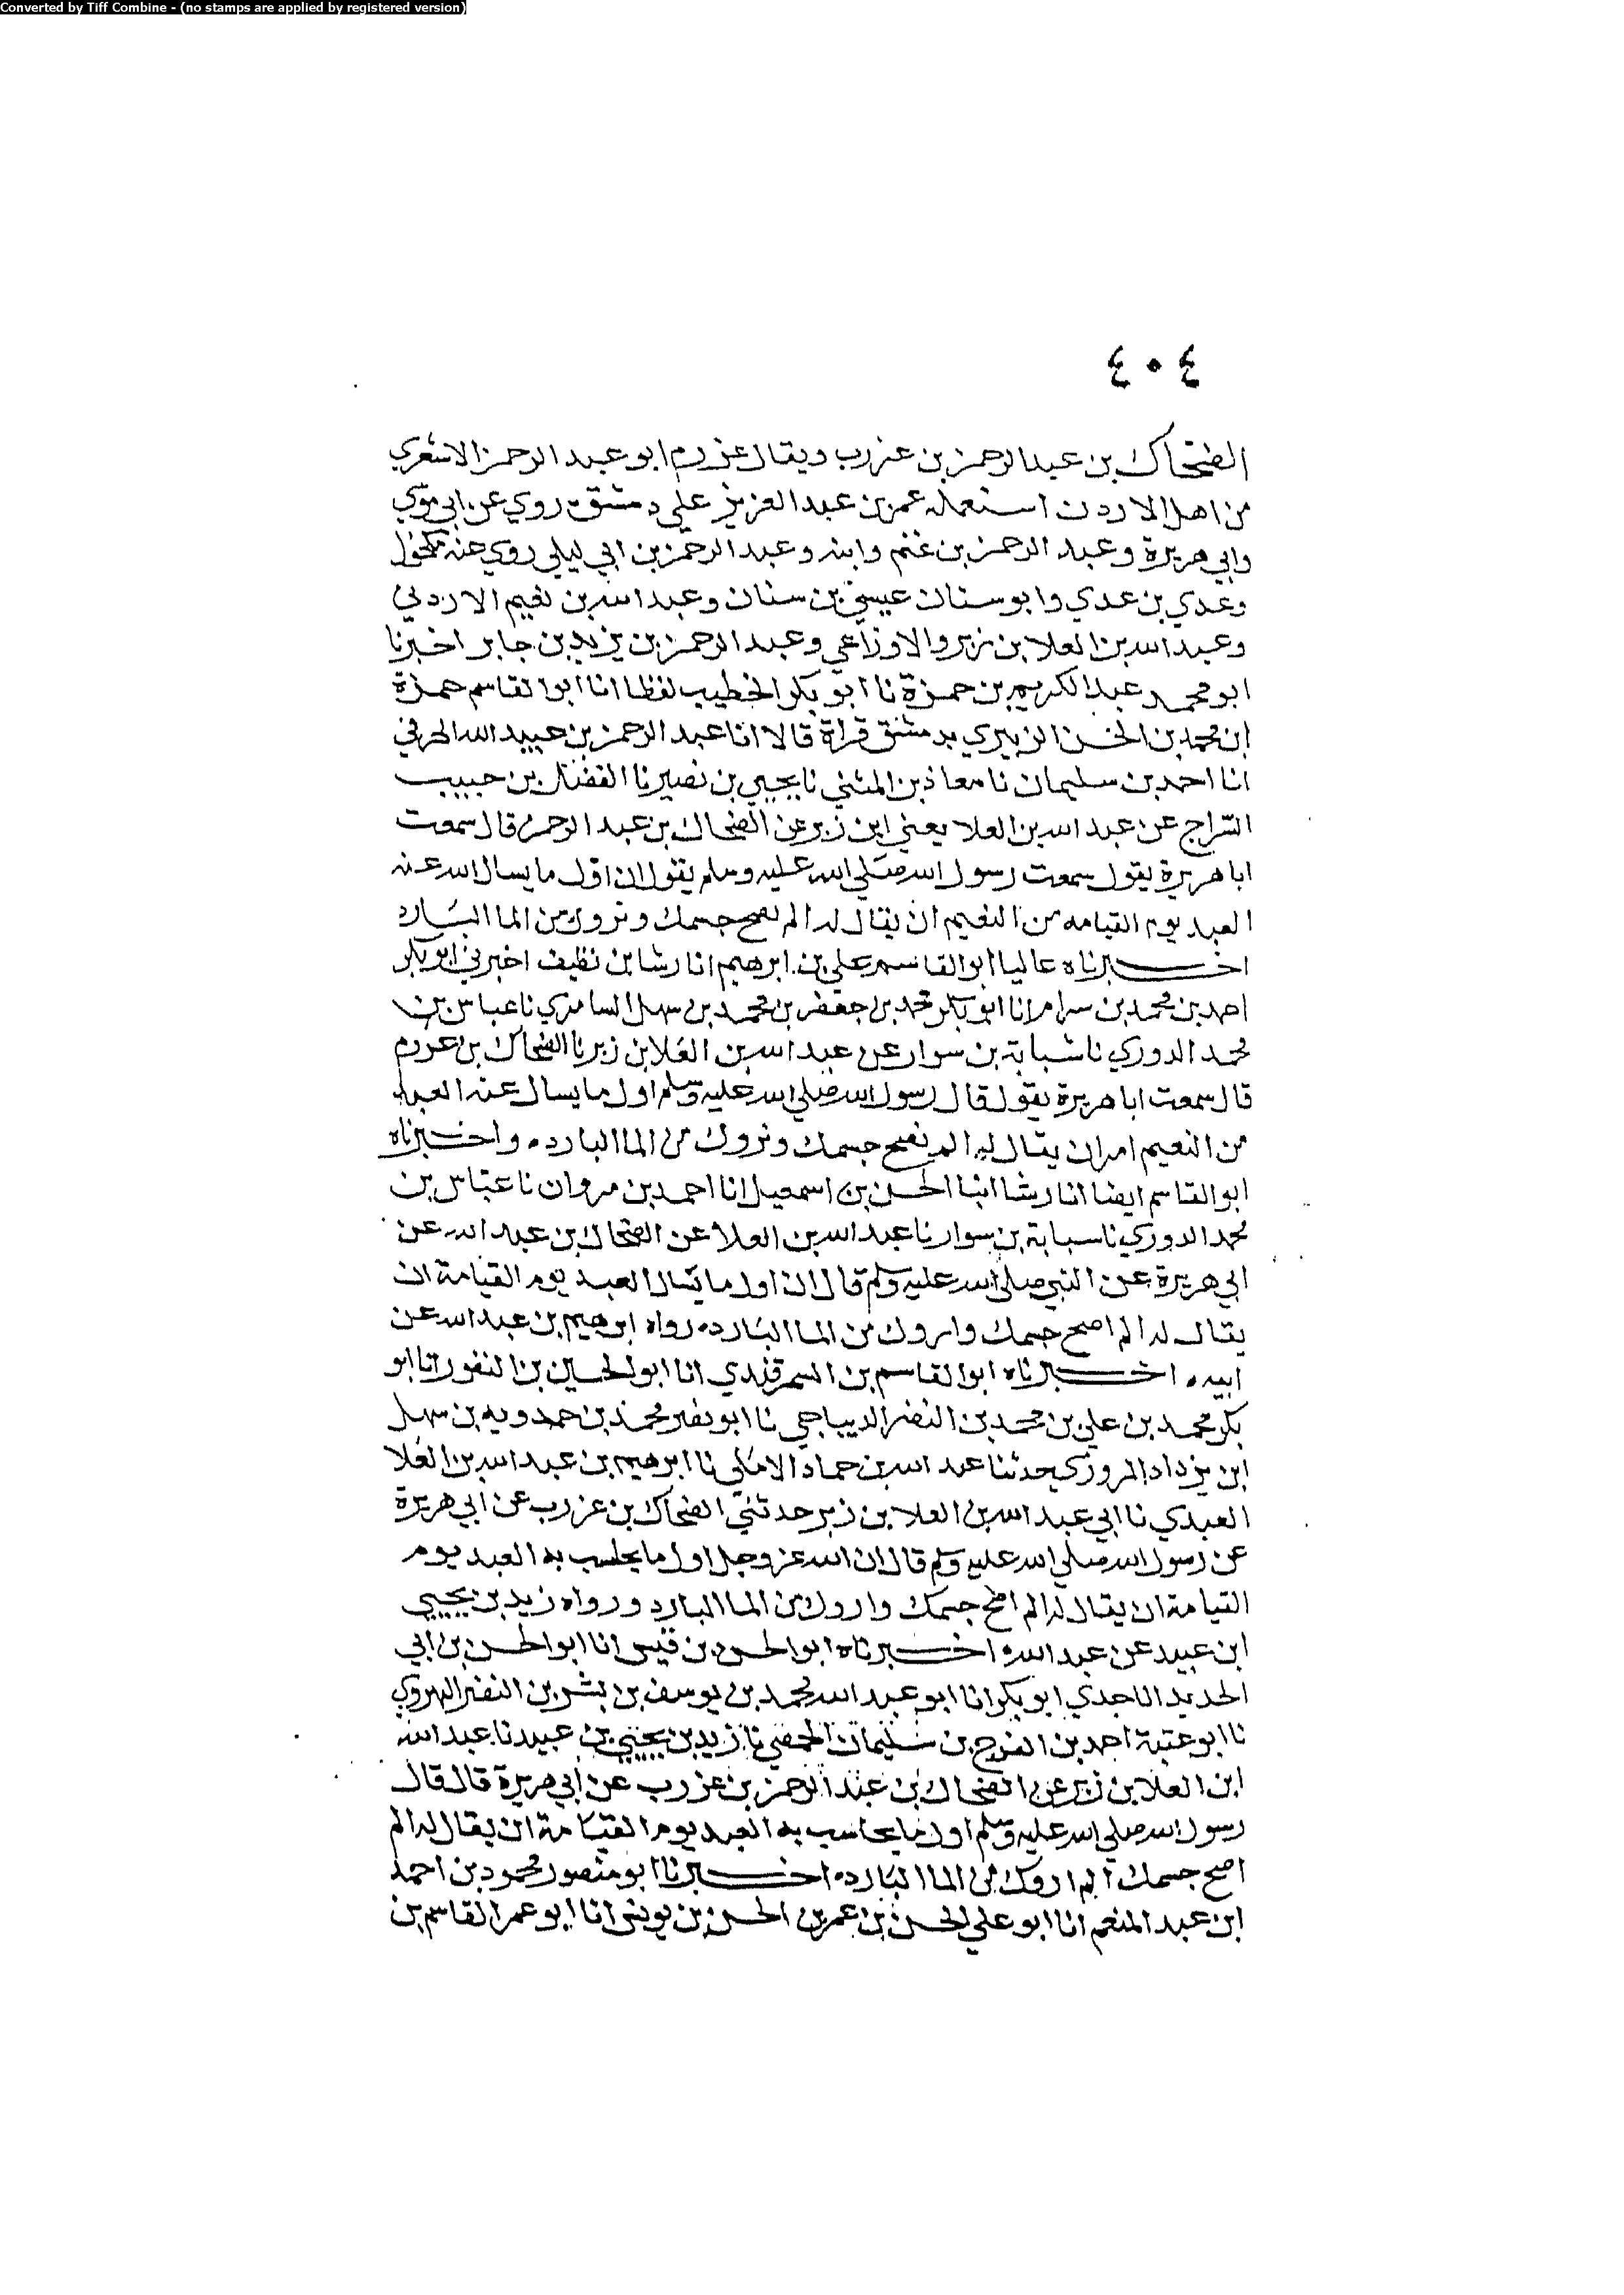 Converted by Tiff Combine - (no stamps are applied by registered version)
٤٠٤
الضحاك بن عبد الرحمن بن عزرب ويقال عزرم ابو عبد الرحمن الاشعري
من اهل الاردن استعمله عمر بن عبد العزيز علي دمشق روي عن ابي موسي
وابي هريرة وعبد الرحمن بن غنم وابنه وعبد الرحمن بن ابي ليلي روي عنه مكحول
وعدي بن عدي وابو سنان عيسي بن سنان وعبد الله بن نعيم الاردني
وعبد الله بن العلا بن زبر والاوزاعي وعبد الرحمن بن يزيد بن جابر اخبرنا
ابو محمد عبد الكريم بن حمزة نا ابو بكر الخطيب لفظا انا ابو القاسم حمزة
ابن محمد بن الحسن الزبيري بدمشق قراة قالا انا عبد الرحمن بن عبيد الله الحرفي
انا احمد بن سليمان نا معاذ بن المثني نا يحيي بن نصير نا الفضل بن حبيب
السراج عن عبد الله بن العلا يعني ابن زبر عن الضحاك بن عبد الرحمن قال سمعت
ابا هريرة يقول سمعت رسول الله صلي الله عليه وسلم يقول ان اول ما يسال الله عنه
العبد يوم القيامه من النعيم ان يقال له الم نصح جسمك ونروك من الما البارد
اخبرناه عاليا ابو القاسم علي بن ابرهيم انا رشا بن نظيف اخبرني ابو بكر
احمد بن محمد بن سرام انا ابو بكر محمد بن جعفر بن محمد بن سهل السامري نا عباس بن
محمد الدوري نا شبابة بن سوار عن عبد الله بن العلا بن زبر نا الضحاك بن عررم
قال سمعت ابا هريرة يقول قال رسول الله صلي الله عليه وسلم اول ما يسال عنه العبد
من النعيم ان يقال له الم نصح جسمك ونروك من الما البارده واخبرناه
ابو القاسم ايضا انا رشا انبا الحسن بن اسمعيل انا احمد بن مروان نا عباس بن
محمد الدوري نا سبابة بن سوار نا عبد الله بن العلا عن الضحاك بن عبد الله عن
ابي هريرة عن النبي صلي الله عليه وسلم قال ان اول ما يسال العبد يوم القيامة ان
يقال له الم اصح جسمك واروك من الما البارده رواه ابرهيم بن عبد الله عن
ابيه اخبرناه ابو القاسم بن السمرقندي انا ابو الحسين بن النقور انا ابو
بكر محمد بن علي بن محمد بن النضر الديباجي نا ابو نصر محمد بن حمدويه بن سهل
ابن يزداد المروزي حدثنا عبد الله بن حماد الاملي نا ابرهيم بن عبد الله بن العلا
العبدي نا ابي عبد الله بن العلا بن زبر حدثني الضحاك بن عزرب عن ابي هريرة
عن رسول الله صلي الله عليه وسلم قال ان الله عز وجل اول ما يحاسب به العبد يوم
القيامة ان يقال له الم اصح جسمك واروك من الما البارد ورواه زيد بن يحيي
ابن عبيد عن عبد الله اخبرناه ابو الحسن بن قبيس انا ابو الحسن بن ابي
الحديد انا جدي ابو بكر انا ابو عبد الله محمد بن يوسف بن بشر بن النضر الهروي
نا ابو عتبة احمد بن الفرج بن سليمان الحمصي نا زيد بن يحيي بن عبيد نا عبد الله
ابن العلا بن زبر عن الضحاك بن عبد الرحمن بن عزرب عن ابي هريرة قال قال
رسول الله صلي الله عليه وسلم اول ما يحاسب به العبد يوم القيامة ان يقال له الم
اصح جسمك الم اروك من الما البارده اخبرنا ابو منصور محمود بن احمد
ابن عبد المنعم انا ابو علي الحسن بن عمر بن الحسن بن يونس انا ابو عمر القاسم بن